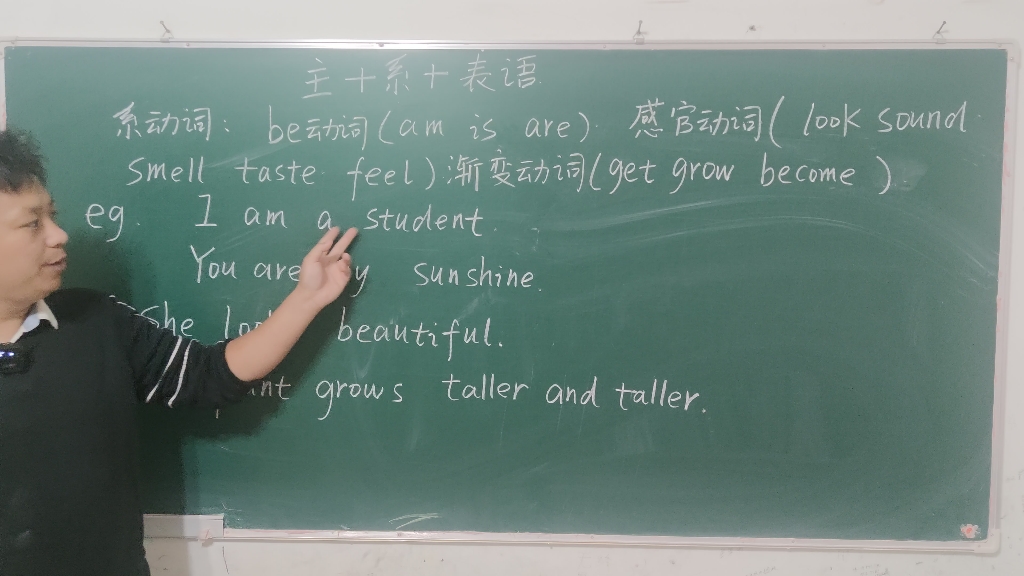 主+系+表语
系动词: be动词(am is are). 感官动词( look sound
smell taste feel)渐变动词(get grow become )
eg. I am a student.
You are sunshine.
She beautiful.
grows taller and taller.